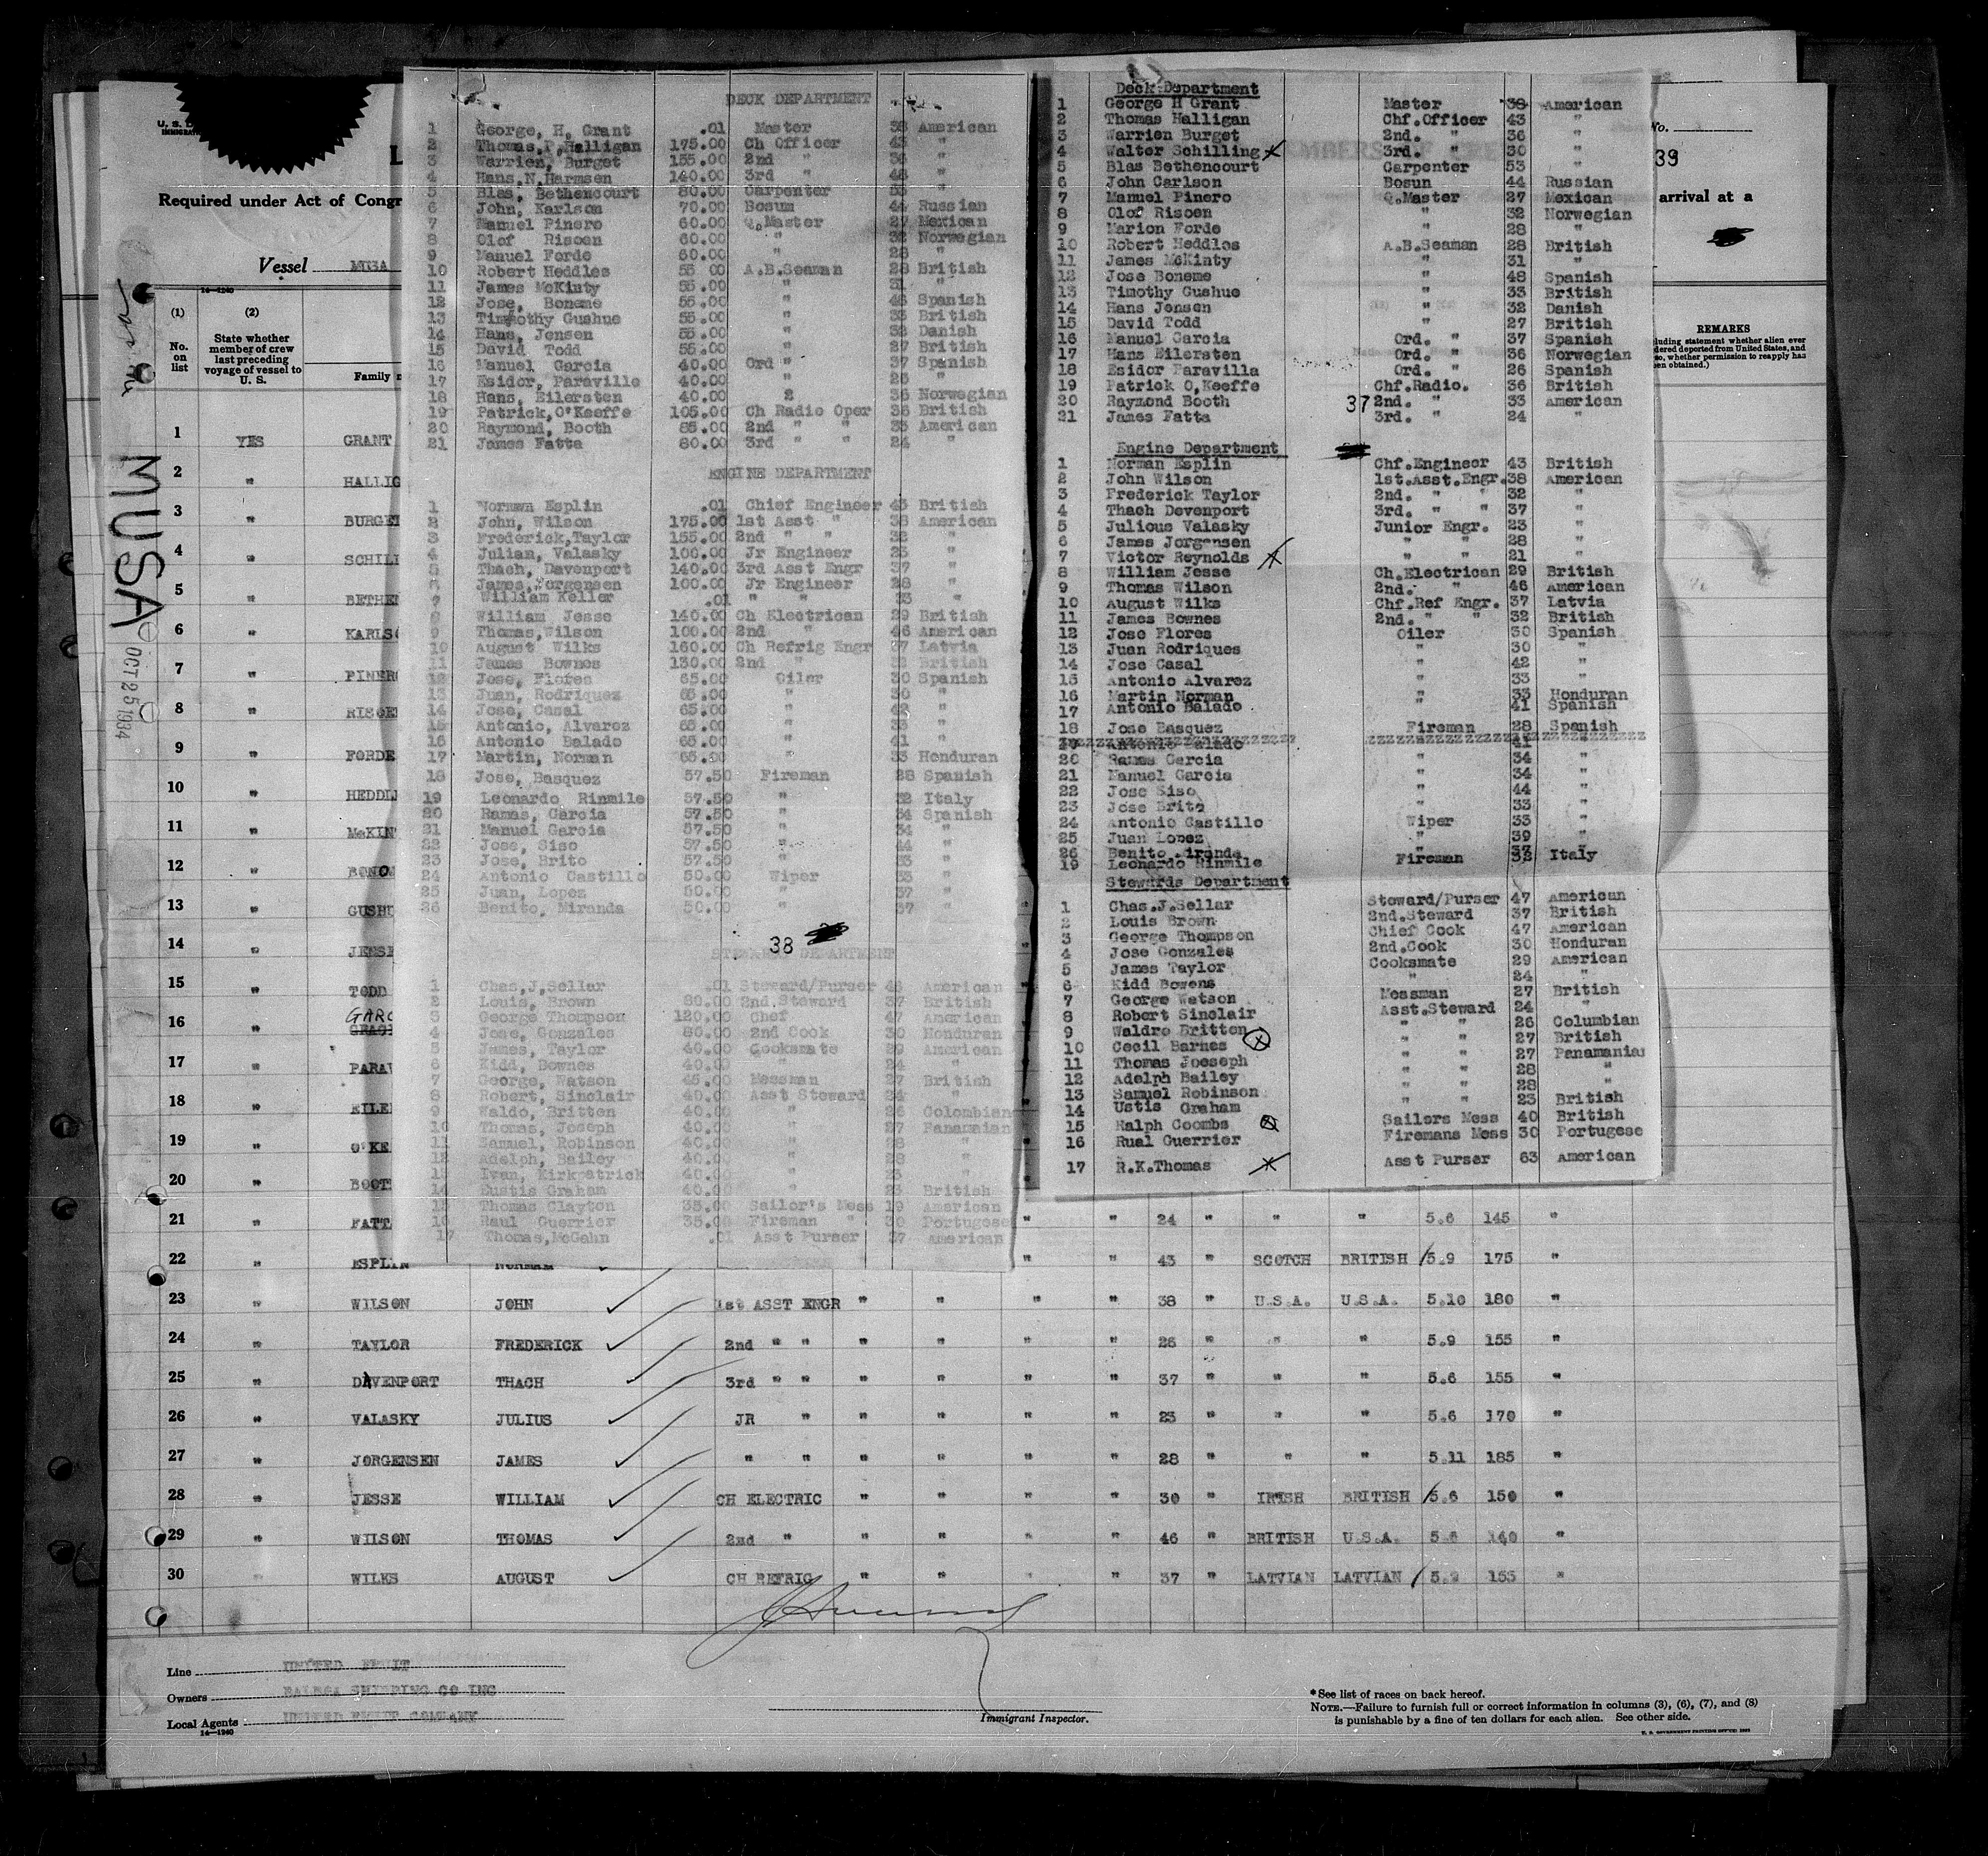 DECK DEPARTMENT
1 George, H, Grant .01 Master 38 American
2 Thomas,P,Halligan 175.00 Ch Officer 43 "
3 Warrien, Burget 155.00 2nd " 36 "
4 Hans,N,Harmsen 140.00 3rd " 48 "
5 Blas, Bethencourt 80.00 Carpenter 53 "
6 John, Karlson 70.00 Bosum 44 Russian
7 Manuel Pinero 60.00 Q.Master 27 Mexican
8 Olof Risoen 60.00 " 32 Norwegian
9 Manuel Forde 60.00 " 28 "
10 Robert Heddles 55 00 A.B.Seaman 28 British
11 James McKinty 55.00 " 31 "
12 Jose, Boneme 55.00 " 48 Spanish
13 Timothy Gushue 55.00 " 33 British
14 Hans, Jensen 55.00 " 32 Danish
15 David Todd 55.00 " 27 British
16 Manuel Garcia 40.00 Ord " 37 Spanish
17 Esidor, Paraville 40.00 " 26 "
18 Hans, Eilersten 40.00 2 36 Norwegian
19 Patrick,O'Keeffe 105.00 Ch Radio Oper 36 British
20 Raymond, Booth 85.00 2nd " " 33 American
21 James Fatta 80.00 3rd " " 24 "
ENGINE DEPARTMENT
1 Norman Esplin .01 Chief Engineer 43 British
2 John, Wilson 175.00 1st Asst " 38 American
3 Frederick,Taylor 155.00 2nd " " 32 "
4 Julian, Valasky 100.00 Jr Engineer 23 "
5 Thach, Davenport 140.00 3rd Asst Engr 37 "
6 James,Jorgensen 100.00 Jr Engineer 28 "
7 William Keller .01 " " 23 "
8 William Jesse 140.00 Ch Electrican 29 British
9 Thomas,Wilson 100.00 2nd " 46 American
10 August Wilks 160.00 Ch Refrig Engr 37 Latvia
11 James Bownes 130.00 2nd " 32 British
12 Jose, Flores 65.00 Oiler 30 Spanish
13 Juan, Rodriquez 65.00 " 30 "
14 Jose, Casal 65.00 " 42 "
15 Antonio, Alvarez 65.00 " 33 "
16 Antonio Balado 65.00 " 41 "
17 Martin, Norman 65.00 " 33 Honduran
18 Jose, Basquez 57.50 Fireman 28 Spanish
19 Leonardo Rinmile 57.50 " 32 Italy
20 Ramas, Garcia 57.50 " 34 Spanish
21 Manuel Garcia 57.50 " 34 "
22 Jose, Siso 57.50 " 44 "
23 Jose, Brito 57.50 " 33 "
24 Antonio Castillo 50.00 Wiper 33 "
25 Juan, Lopez 50.00 " 37 "
26 Benito, Miranda 50.00 " 37 "
38
STEWARDS DEPARTMENT
1 Chas,J,Sellar .01 Steward/Purser 48 American
2 Louis, Brown 80.00 2nd.Steward 37 British
3 George Thompson 120.00 Chef 47 American
4 Jose, Gonzales 80.00 2nd Cook 30 Honduran
5 James, Taylor 40.00 Cooksmate 29 American
6 Kidd, Bownes 40.00 24 "
7 George, Watson 45.00 Messman 27 British
8 Robert, Sinclair 40.00 Asst Steward 24 "
9 Waldo, Britten 40.00 " 26 Colombian
10 Thomas, Joseph 40.00 " 27 Panamaian
11 Samuel, Robinson 40.00 " 28 "
12 Adelph, Bailey 40.00 " 28 "
13 Ivan, Kirkpatrick 40.00 " 23 "
14 Eustis Graham 40.00 " 23 British
15 Thomas Clayton 35.00 Sailor's Mess 19 American
16 Raul Guerrier 35.00 Fireman " 30 Portugese
17 Thomas,McGahn .01 Asst Purser 27 American
Deck Department
1 George H Grant Master 38 American
2 Thomas Halligan Chf.Officer 43 "
3 Warrien Burget 2nd. " 36 "
4 Walter Schilling 3rd. " 30 "
5 Blas Bethencourt Carpenter 53 "
6 John Carlson Bosun 44 Russian
7 Manuel Pinero Q.Master 27 Mexican
8 Olof Risoen " 32 Norwegian
9 Marion Forde " 28 "
10 Robert Heddles A.B.Seaman 28 British
11 James McKinty " 31 "
12 Jose Boneme " 48 Spanish
13 Timothy Gushue " 33 British
14 Hans Jensen " 32 Danish
15 David Todd " 27 British
16 Manuel Garcia Ord. " 37 Spanish
17 Hans Eilersten Ord. " 36 Norwegian
18 Esidor Paravilla Ord. " 26 Spanish
19 Patrick O,Keeffe Chf.Radio. 36 British
20 Raymond Booth 2nd. " 33 American
37
21 James Fatta 3rd. " 24 "
Engine Department
1 Norman Esplin Chf.Engineer 43 British
2 John Wilson 1st.Asst.Engr. 38 American
3 Frederick Taylor 2nd. " " 32 "
4 Thach Devenport 3rd. " " 37 "
5 Julious Valasky Junior Engr. 23 "
6 James Jorgensen " " 28 "
7 Victor Reynolds " " 21 "
8 William Jesse Ch.Electrican 29 British
9 Thomas Wilson 2nd. " 46 American
10 August Wilks Chf.Ref Engr. 37 Latvia
11 James Bownes 2nd. " " 32 British
12 Jose Flores Oiler 30 Spanish
13 Juan Rodriques " 30 "
14 Jose Casal " 42 "
15 Antonio Alvarez " 33 "
16 Martin Norman " 33 Honduran
17 Antonio Balado " 41 Spanish
18 Jose Basquez Fireman 28 Spanish
19 Antonio Balado 41
20 Rames Garcia " 34 "
21 Manuel Garcia " 34 "
22 Jose Siso " 44 "
23 Jose Brito " 33 "
24 Antonio Castillo Wiper 33 "
25 Juan Lopez " 39 "
26 Benito Miranda 37 "
19 Leonardo Rinmile Fireman 32 Italy
Stewards Department
1 Chas.J.Sellar Steward/Purser 47 American
2 Louis Brown 2nd.Steward 37 British
3 George Thompson Chief Cook 47 American
4 Jose Gonzales 2nd.Cook 30 Honduran
5 James Taylor Cooksmate 29 American
6 Kidd Bowens " 24 "
7 George Watson Messman 27 British
8 Robert Sinclair Asst.Steward 24 "
9 Waldro Britton " " 26 Columbian
10 Cecil Barnes " " 27 British
11 Thomas Joeseph " " 27 Panamanian
12 Adelph Bailey " " 28 "
13 Samuel Robinson " " 28 "
14 Ustis Graham " " 23 British
15 Ralph Coombs Sailors Mess 40 British
16 Rual Guerrier Firemans Mess 30 Portugese
17 R.K.Thomas Asst Purser 63 American
No.
39
Required under Act of Congr
arrival at a
Vessel MUSA
14-1240
(1) (2)
No. on list
State whether member of crew last preceding voyage of vessel to U. S.
Family n
REMARKS
MUSA
OCT 25 1934
1 YES GRANT
2 " HALLIG
3 " BURGET
4 " SCHILL
5 " BETHEN
6 " KARLSO
7 " PINERO
8 " RISOEN
9 " FORDE
10 " HEDDLE
11 " McKINT
12 " BONOM
13 " GUSHU
14 " JENSE
15 " TODD
16 " GARC
17 " PARAV
18 " EILER
19 " O'KE
20 " BOOT
21 " FATT " " 24 " " " 5.6 145 "
22 " ESPLIN NORMAN " " 43 " SCOTCH BRITISH 5.9 175 "
23 " WILSON JOHN 1st ASST ENGR " " " " 38 " U.S.A. U.S.A. 5.10 180 "
24 " TAYLOR FREDERICK 2nd " " " " " " 26 " " " 5.9 155 "
25 " DAVENPORT THACH 3rd " " " " " " 37 " " " 5.6 155 "
26 " VALASKY JULIUS JR " " " " " 23 " " " 5.6 170 "
27 " JORGENSEN JAMES " " " " " " 28 " " " 5.11 185 "
28 " JESSE WILLIAM CH ELECTRIC " " " " 30 " IRISH BRITISH 5.6 150 "
29 " WILSON THOMAS 2nd " " " " " 46 " BRITISH U.S.A. 5.6 140 "
30 " WILKS AUGUST CH REFRIG " " " " 37 " LATVIAN LATVIAN 5.2 155 "
Line UNITED FRUIT
Owners BALBOA SHIPPING CO INC
Local Agents UNITED FRUIT COMPANY
14-1240
Immigrant Inspector.
*See list of races on back hereof.
NOTE.—Failure to furnish full or correct information in columns (3), (6), (7), and (8)
is punishable by a fine of ten dollars for each alien. See other side.